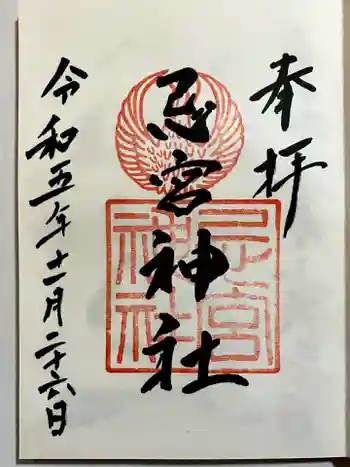 奉拝
忌宮神社
令和五年十一月二十六日
忌宮
神社